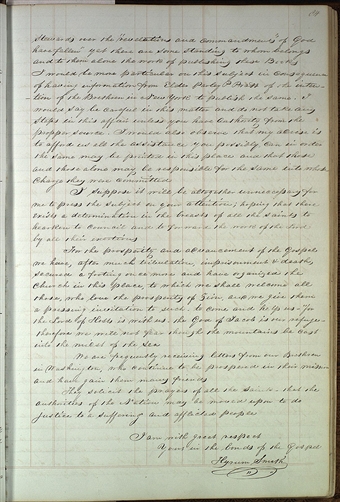 stewards over the "revelations and commandments" of God
have fallen yet there are some standing to whom belongs
and to them alone the work of publishing these Books
I would be more particular on this subject in consequence
of having information from Elder Parley P Pratt of the inten-
tion of the Brethren in New York to publish the same
would say be careful in this matter and do not take any
steps in this affair unless you have authority from the
proper source. I would also observe that my advice is
to afford us all the assistance you possibly can in order
the same may be printed in this place and that those
and those alone may be responsible for the same into whose
charge they were committed
I suppose it will be altogether unnecessary for
me to press the subject on your attention; hoping that there
exists a determination in the breasts of all the saints to
hearken to Council and to forward the work of the Lord
by all their exertions
For the prosperity and advancement of the Gospel
we have, after much tribulation, imprisonment & death,
secured a footing once more and have organized the
Church in this place, to which we shall welcome all
those, who love the prosperity of Zion, and we give them
a pressing invitation to such to come and help us For
the Lord of Hosts is with us the God of Jacob is our refuge
therefore we will not fear though the mountains be cast
into the midst of the Sea
We are frequently receiving letters from our Brethren
in Washington, who continue to be prospered in their mission
and have gain them many friends
They solicit the prayers of all the Saints that the
authorities of the Nation may be moved upon to do
justice to a suffering and afflicted people
I am with great respect
Yours in the bonds of the Gospel
Hyrum Smith